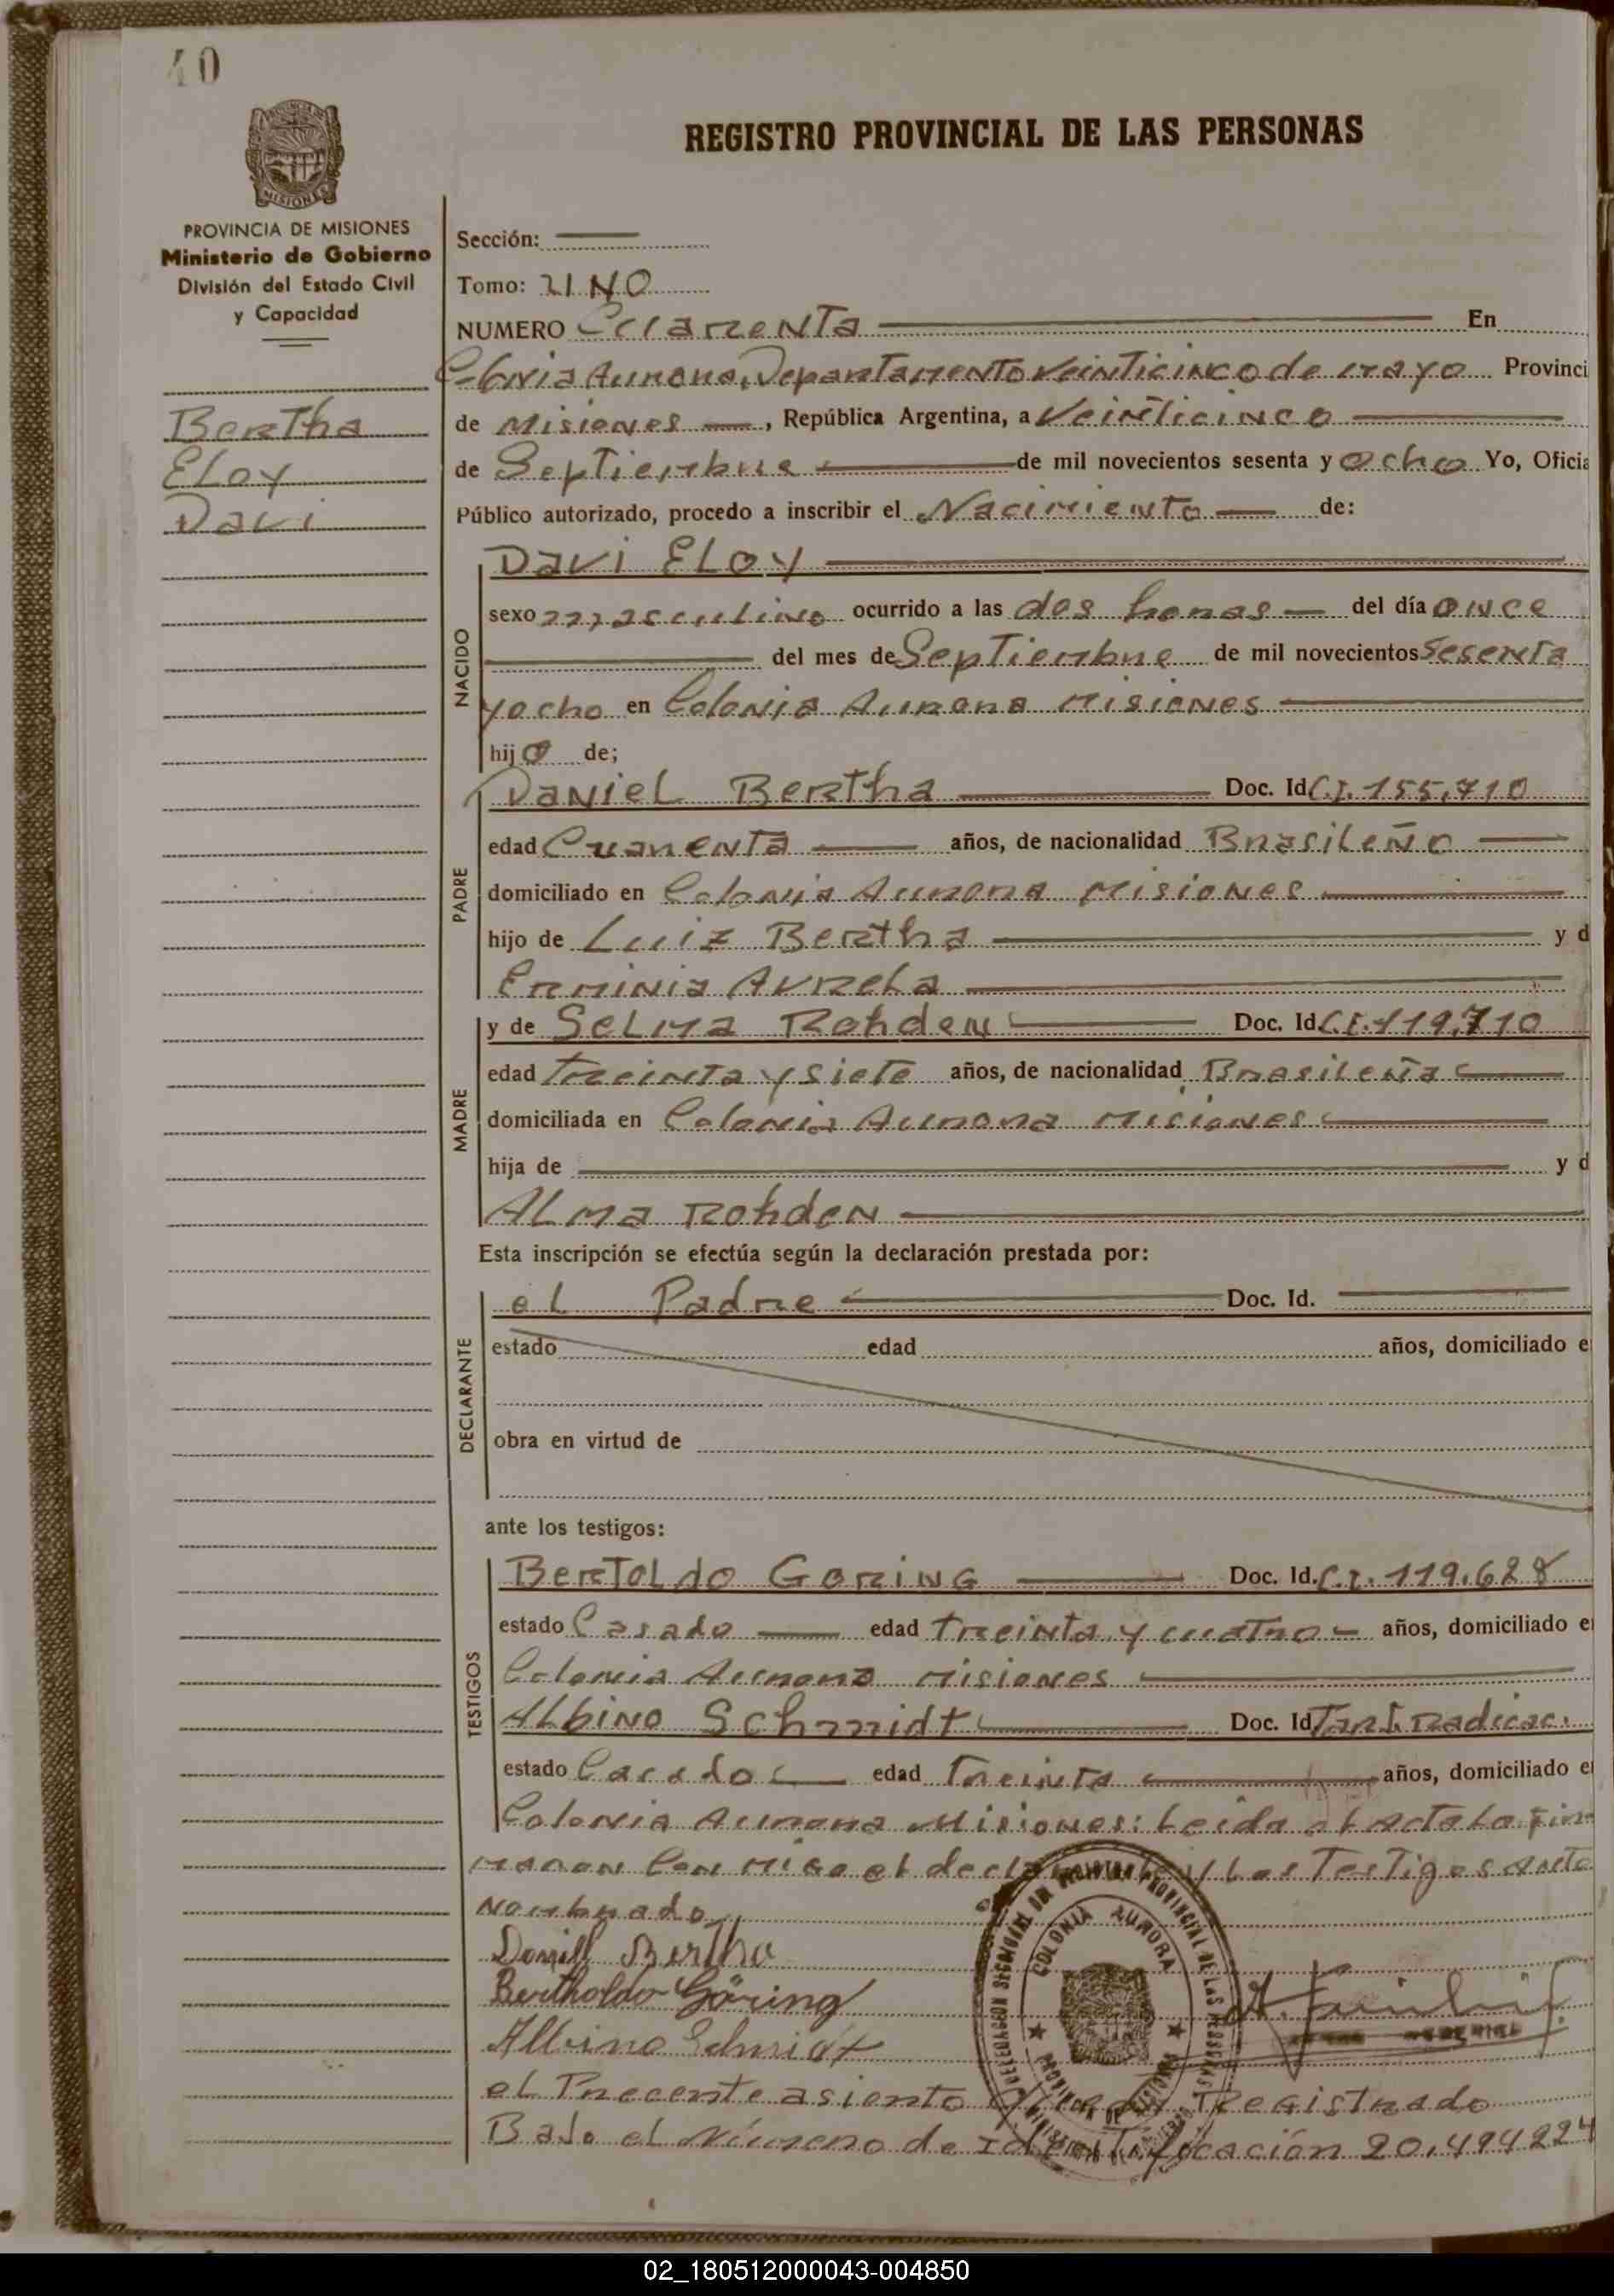 40
REGISTRO PROVINCIAL DE LAS PERSONAS
PROVINCIA DE MISIONES
Ministerio de Gobierno
División del Estado Civil
y Capacidad
Bertha
Eloy
Davi
Sección:
Tomo: UNO
NUMERO Cuarenta En
Colonia Aurora, Departamento Veinticinco de Mayo Provinci
de Misiones, República Argentina, a Veinticinco
de Septiembre de mil novecientos sesenta y ocho Yo, Oficia
Público autorizado, procedo a inscribir el Nacimiento de:
NACIDO
Davi Eloy
sexo masculino ocurrido a las dos horas del día once
del mes de Septiembre de mil novecientos sesenta
y ocho en Colonia Aurora Misiones
hijo de;
PADRE
Daniel Bertha Doc. Id C.I. 155.710
edad Cuarenta años, de nacionalidad Brasileño
domiciliado en Colonia Aurora Misiones
hijo de Luiz Bertha y d
Erminia
MADRE
y de Selma Rohden Doc. Id. C.I. 119.710
edad treinta y siete años, de nacionalidad Brasileña
domiciliada en Colonia Aurora Misiones
hija de y d
Alma Rohden
Esta inscripción se efectúa según la declaración prestada por:
DECLARANTE
el Padre Doc. Id.
estado edad años, domiciliado e
obra en virtud de
ante los testigos:
TESTIGOS
Bertoldo Goring Doc. Id. C.I. 119.628
estado Casado edad treinta y cuatro años, domiciliado e
Colonia Aurora Misiones
Albino Schmidt Doc. Id
estado Casado edad Treinta años, domiciliado e
Colonia Aurora Misiones: Leida el Acta La fir
maron con migo el declarante y Los Testigos ante
Nombrado
Daniel Bertha
Bertholdo Göring
Albino Schmidt
COLONIA AURORA
PROVINCIA DE MISIONES
el Precente asiento Registrado
Bajo el Número de Identificación 20.494224
02_180512000043-004850